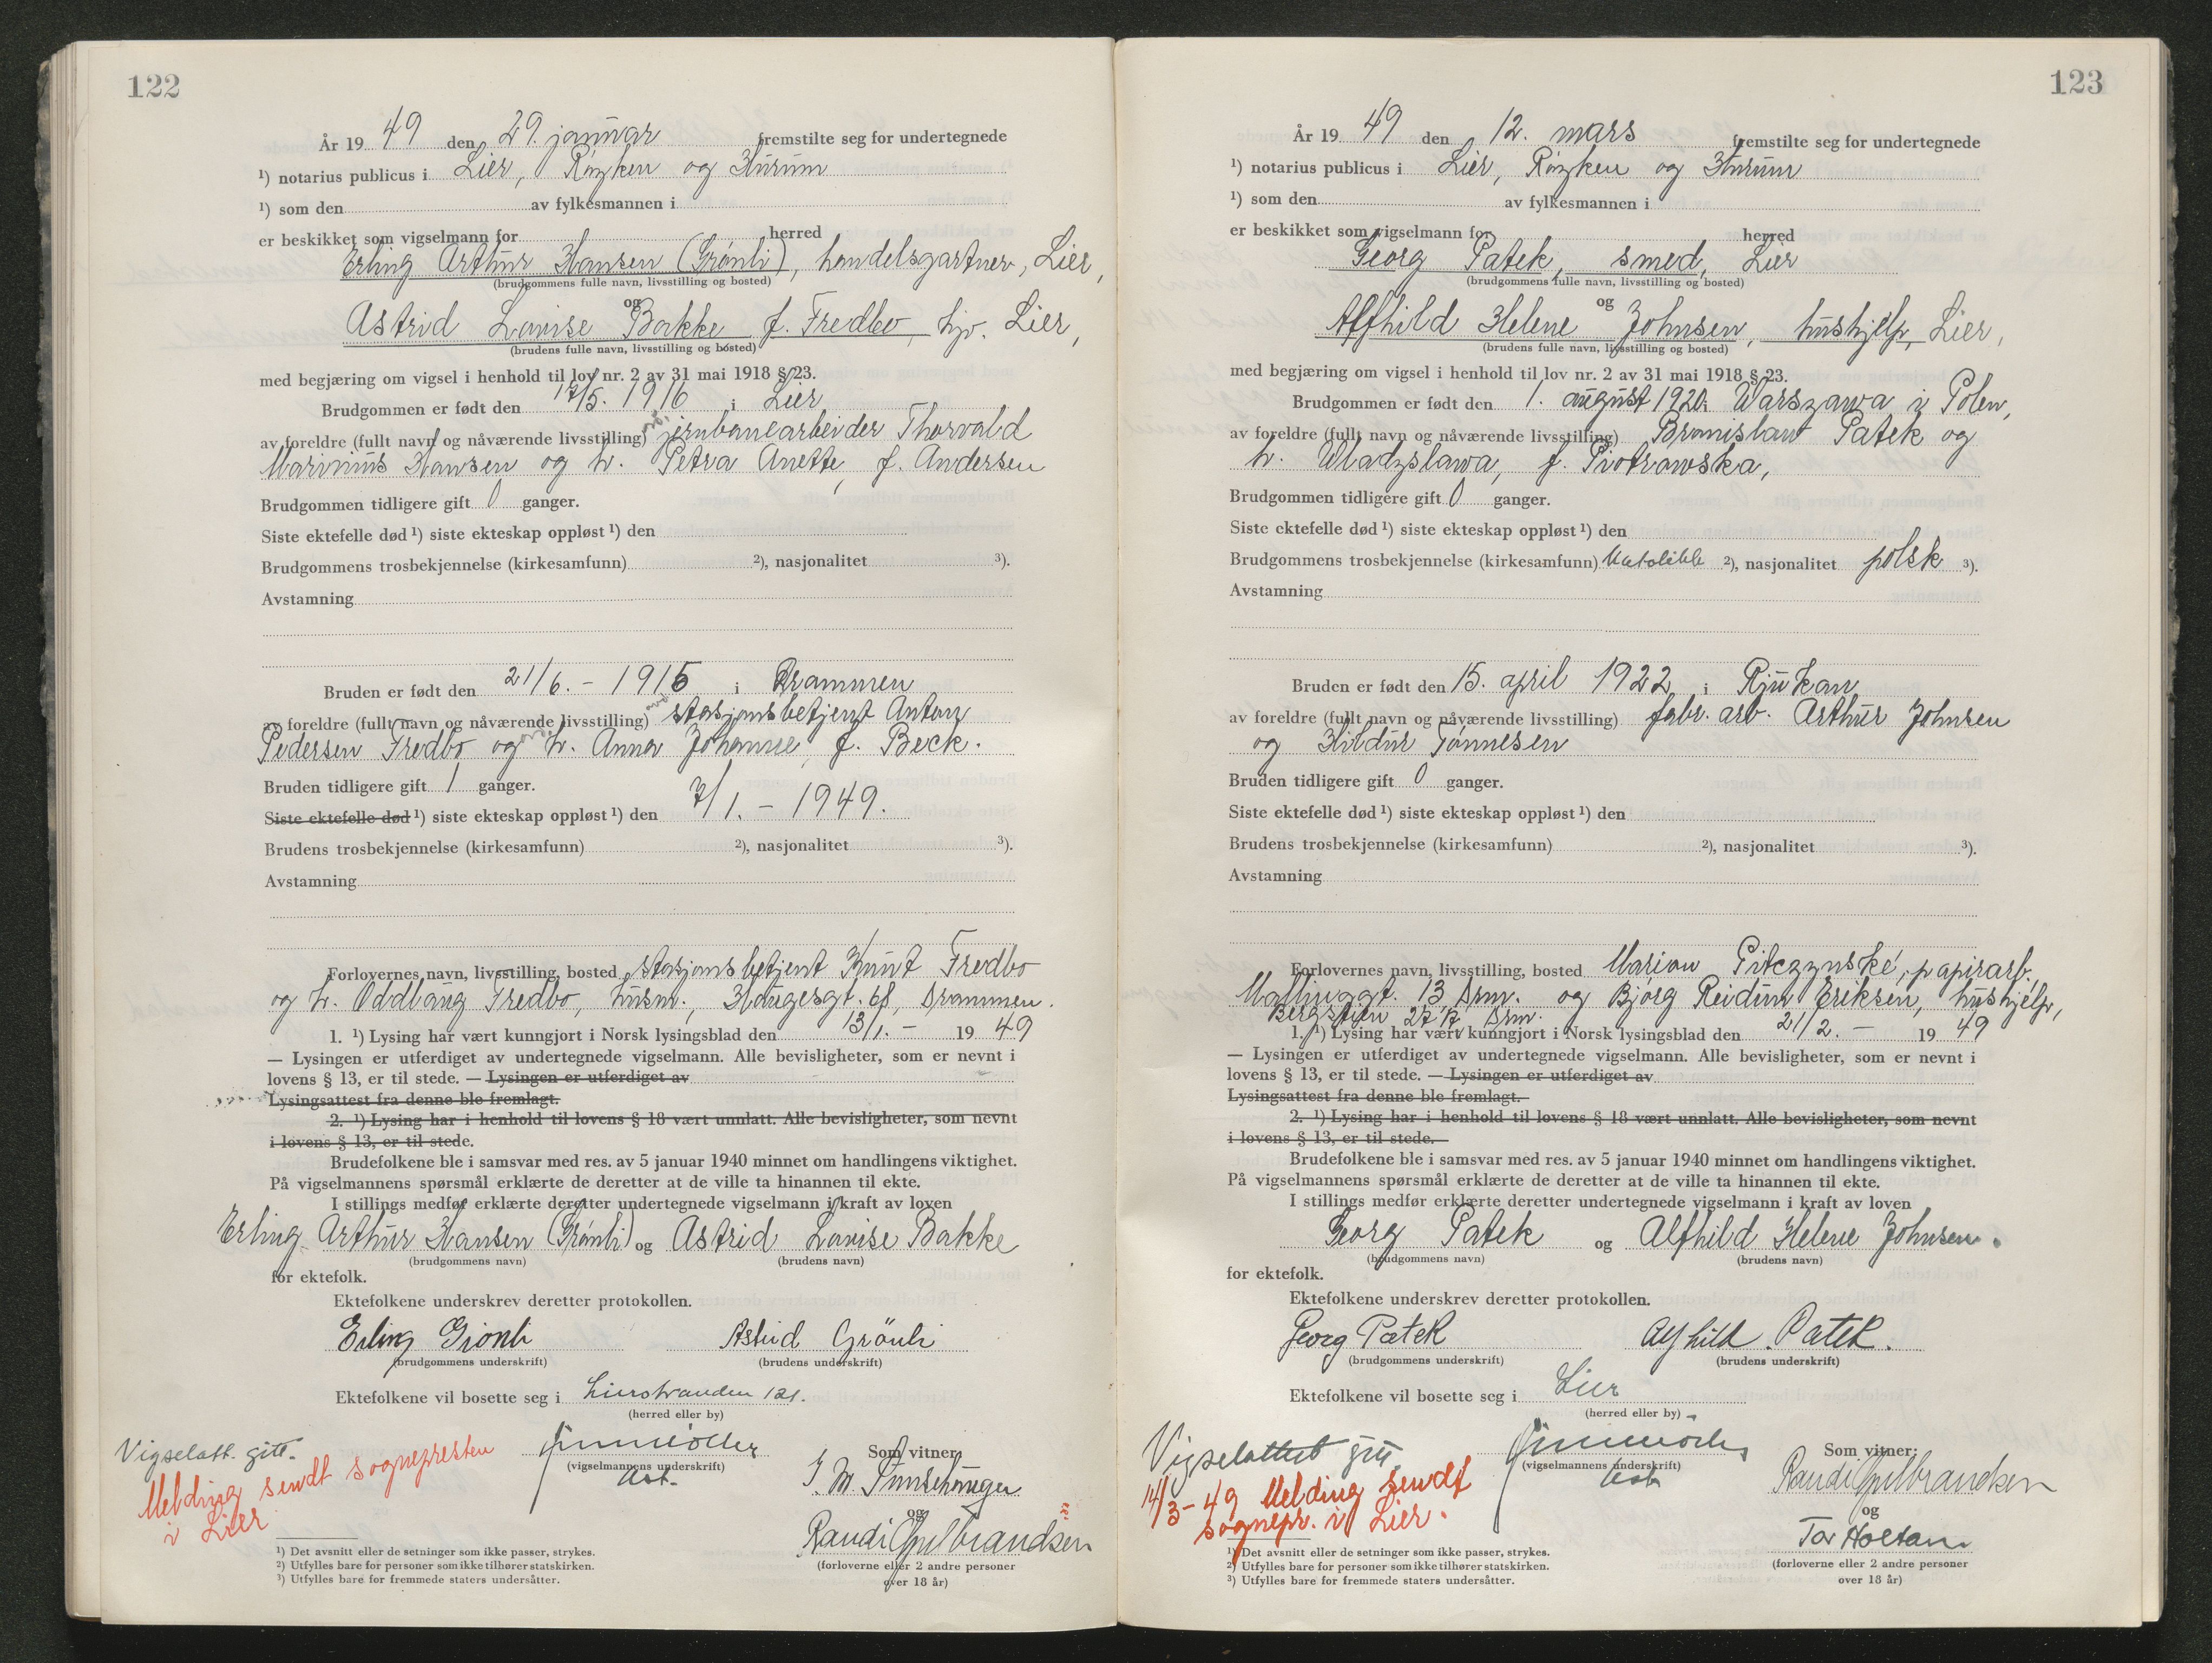 122
År 19 49 den 29. januar fremstilte seg for undertegnede
¹) notarius publicus i Lier, Røyken og Hurum
¹) som den av fylkesmannen i
er beskikket som vigselmann for herred
Erling Arthur Hansen (Grønli), handelsgartner, Lier,
(brudgommens fulle navn, livsstilling og bosted)
og
Astrid Lovise Bakke f. Fredbo, hjv. Lier,
(brudens fulle navn, livsstilling og bosted)
med begjæring om vigsel i henhold til lov nr. 2 av 31 mai 1918 § 23.
Brudgommen er født den 17/5. 1916 i Lier
av foreldre (fullt navn og nåværende livsstilling) jernbanearbeider Thorvald
Marinius Hansen og h. Petra Anette, f. Andersen
Brudgommen tidligere gift 0 ganger.
Siste ektefelle død ¹) siste ekteskap oppløst ¹) den
Brudgommens trosbekjennelse (kirkesamfunn) ²), nasjonalitet ³).
Avstamning
Bruden er født den 21/6. - 1915 i Drammen
av foreldre (fullt navn og nåværende livsstilling) stasjonsbetjent Anton
Pedersen Fredbo og h. Anna Johanne, f. Beck.
Bruden tidligere gift 1 ganger.
Siste ektefelle død ¹) siste ekteskap oppløst ¹) den 7/1. - 1949.
Brudens trosbekjennelse (kirkesamfunn) ²), nasjonalitet ³).
Avstamning
Forlovernes navn, livsstilling, bosted stasjonsbetjent Knut Fredbo
og h. Oddbaug Fredbo, husm., Haugesgt. 68, Drammen.
1. ¹) Lysing har vært kunngjort i Norsk lysingsblad den 13/1. - 19 49
— Lysingen er utferdiget av undertegnede vigselmann. Alle bevisligheter, som er nevnt i
lovens § 13, er til stede. — Lysingen er utferdiget av
Lysingsattest fra denne ble fremlagt.
2. ¹) Lysing har i henhold til lovens § 18 vært unnlatt. Alle bevisligheter, som nevnt
i lovens § 13, er til stede.
Brudefolkene ble i samsvar med res. av 5 januar 1940 minnet om handlingens viktighet.
På vigselmannens spørsmål erklærte de deretter at de ville ta hinannen til ekte.
I stillings medfør erklærte deretter undertegnede vigselmann i kraft av loven
Erling Arthur Hansen (Grønli) og Astrid Lovise Bakke
(brudgommens navn) (brudens navn)
for ektefolk.
Ektefolkene underskrev deretter protokollen.
Erling Grønli Astrid Grönli
(brudgommens underskrift) (brudens underskrift)
Ektefolkene vil bosette seg i Lierstranden 121.
(herred eller by)
Vigselatt. gitt.
Melding sendt sognepresten
i Lier
(vigselmannens underskrift)
Som vitner:
og
Randi Gulbrandsen
(forloverne eller 2 andre personer
over 18 år)
¹) Det avsnitt eller de setninger som ikke passer, strykes.
²) Utfylles bare for personer som ikke tilhører statskirken.
³) Utfylles bare for fremmede staters undersåtter.
123
År 19 49 den 12. mars fremstilte seg for undertegnede
¹) notarius publicus i Lier, Røyken og Hurum
¹) som den av fylkesmannen i
er beskikket som vigselmann for herred
Georg Patek, smed, Lier
(brudgommens fulle navn, livsstilling og bosted)
og
Alfhild Helene Johnsen, hushjelp, Lier,
(brudens fulle navn, livsstilling og bosted)
med begjæring om vigsel i henhold til lov nr. 2 av 31 mai 1918 § 23.
Brudgommen er født den 1. august 1920 i Warszawa i Polen,
av foreldre (fullt navn og nåværende livsstilling) Bronislaw Patek og
h. Wladzslawa, f. Piotrowska,
Brudgommen tidligere gift 0 ganger.
Siste ektefelle død ¹) siste ekteskap oppløst ¹) den
Brudgommens trosbekjennelse (kirkesamfunn) Katolikk ²), nasjonalitet polsk ³).
Avstamning
Bruden er født den 15. april 1922 i Rjukan
av foreldre (fullt navn og nåværende livsstilling) fabr. arb. Arthur Johnsen
og Hildur Tønnesen
Bruden tidligere gift 0 ganger.
Siste ektefelle død ¹) siste ekteskap oppløst ¹) den
Brudens trosbekjennelse (kirkesamfunn) ²), nasjonalitet ³).
Avstamning
Forlovernes navn, livsstilling, bosted Marian papirarb.,
13 Drm. og Bjørg Reidun Eriksen, hushjelp,
Bergstien Drm.
1. ¹) Lysing har vært kunngjort i Norsk lysingsblad den 21/2. - 19 49
— Lysingen er utferdiget av undertegnede vigselmann. Alle bevisligheter, som er nevnt i
lovens § 13, er til stede. — Lysingen er utferdiget av
Lysingsattest fra denne ble fremlagt.
2. ¹) Lysing har i henhold til lovens § 18 vært unnlatt. Alle bevisligheter, som nevnt
i lovens § 13, er til stede.
Brudefolkene ble i samsvar med res. av 5 januar 1940 minnet om handlingens viktighet.
På vigselmannens spørsmål erklærte de deretter at de ville ta hinannen til ekte.
I stillings medfør erklærte deretter undertegnede vigselmann i kraft av loven
Georg Patek og Alfhild Helene Johnsen.
(brudgommens navn) (brudens navn)
for ektefolk.
Ektefolkene underskrev deretter protokollen.
Georg Patek Alfhild Patek.
(brudgommens underskrift) (brudens underskrift)
Ektefolkene vil bosette seg i Lier
(herred eller by)
Vigselattest gitt
14/3-49 Melding sendt
sognepr. i Lier.
(vigselmannens underskrift)
Som vitner:
Randi Gulbrandsen
og
Tor Holtan
(forloverne eller 2 andre personer
over 18 år)
¹) Det avsnitt eller de setninger som ikke passer, strykes.
²) Utfylles bare for personer som ikke tilhører statskirken.
³) Utfylles bare for fremmede staters undersåtter.